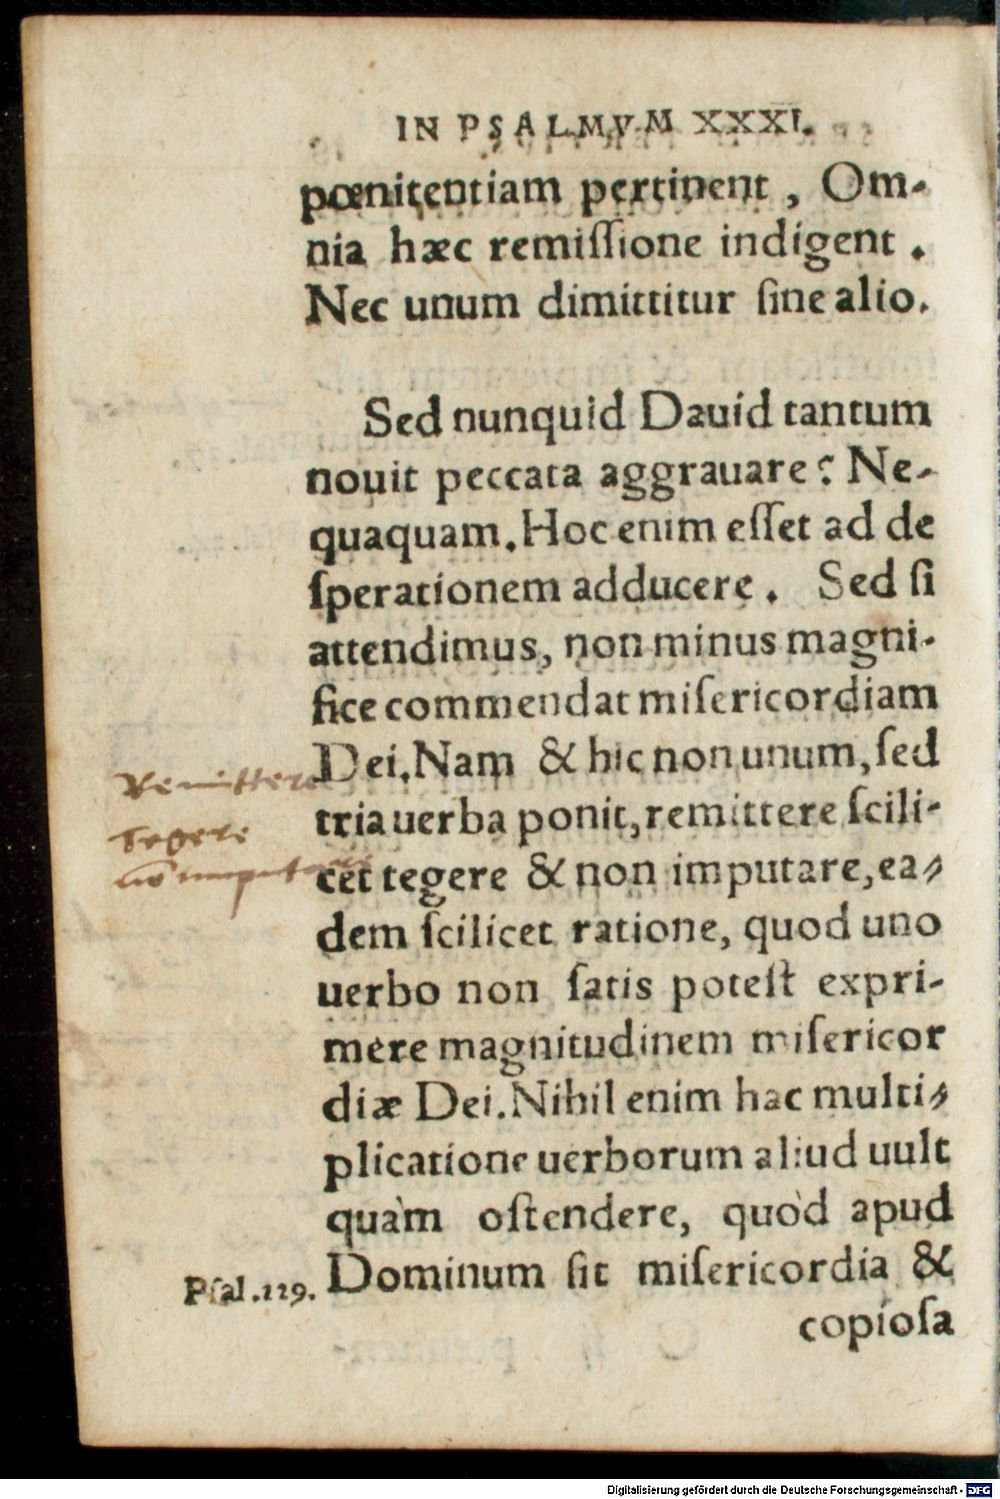 IN PSALMVM XXXI.
pœnitentiam pertinent, Om-
nia hæc remiſſione indigent.
Nec unum dimittitur ſine alio.
Sed nunquid Dauid tantum
nouit peccata aggrauare? Ne-
quaquam. Hoc enim eſſet ad de
ſperationem adducere. Sed ſi
attendimus, non minus magni-
fice commendat miſericordiam
Dei. Nam & hic non unum, ſed
Remittere
tria uerba ponit, remittere ſcili-
Tegere
cet tegere & non imputare, ea-
nō imputare
dem ſcilicet ratione, quod uno
uerbo non ſatis poteſt expri-
mere magnitudinem miſericor
diæ Dei. Nihil enim hac multi-
plicatione uerborum aliud uult
quàm oſtendere, quòd apud
Pſal. 129.
Dominum ſit miſericordia &
copioſa
Digitalisierung gefördert durch die Deutsche Forschungsgemeinschaft - DFG